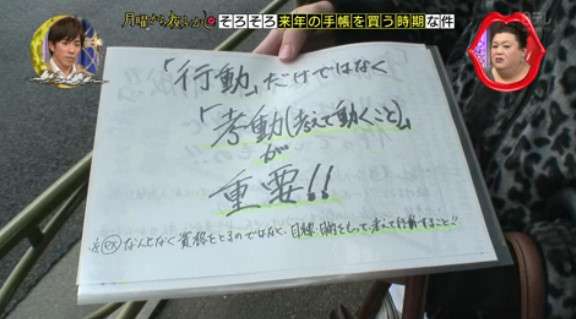 月曜から夜ふかし
そろそろ来年の手帳を買う時期な件
「行動」だけではなく
「考動(考えて動くこと)」
が
重要!!
なんとなく資格をとるのではなく、目標、目的をもって、考えて行動すること!!